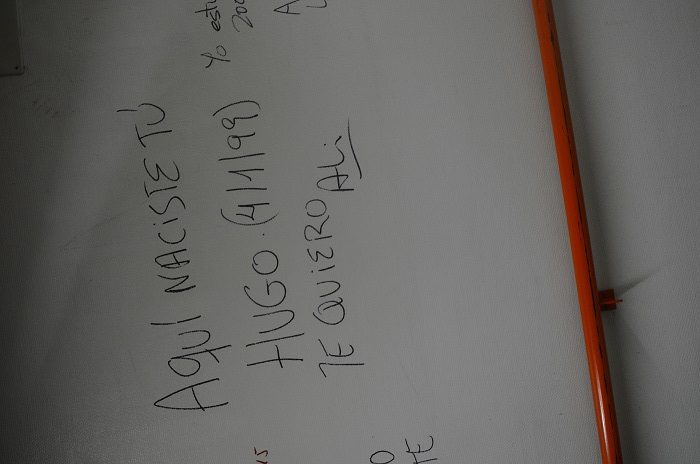 AQUÍ NACISTE TÚ
HUGO. (4/1/99)
TE QUIERO ALi.
Yo estu
200
15
O
TE